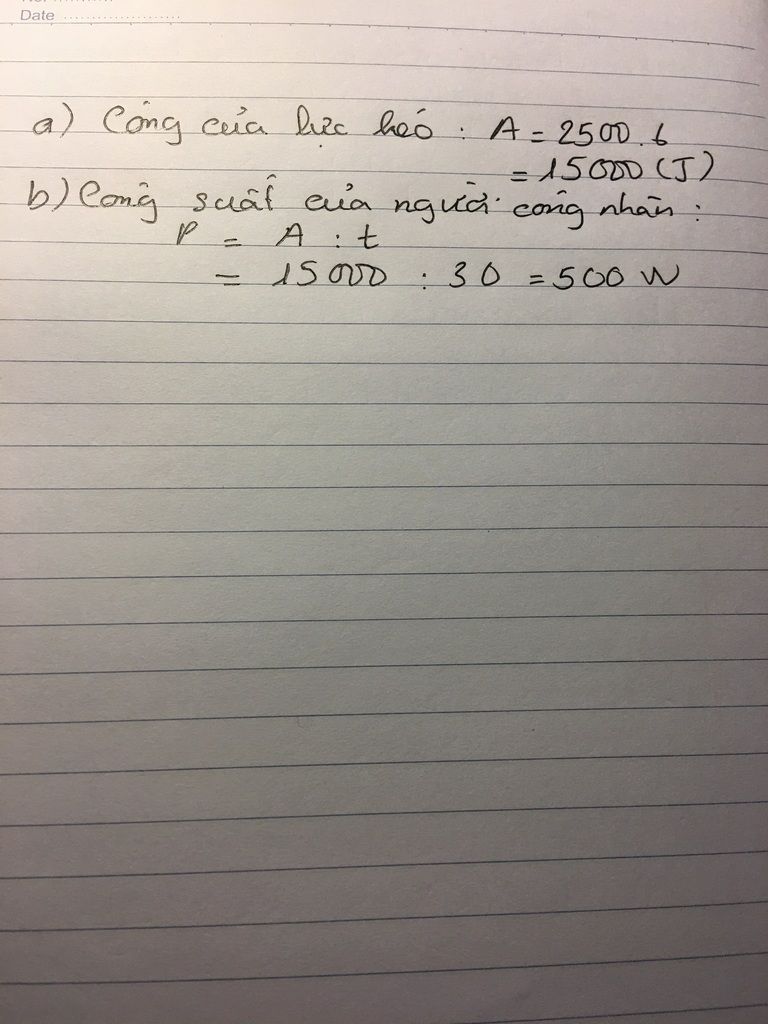 Date ......................
a) Công của lực kéo : A = 2500.6
= 15000 (J)
b) Công suất của người công nhân :
P = A : t
= 15000 : 30 = 500 W